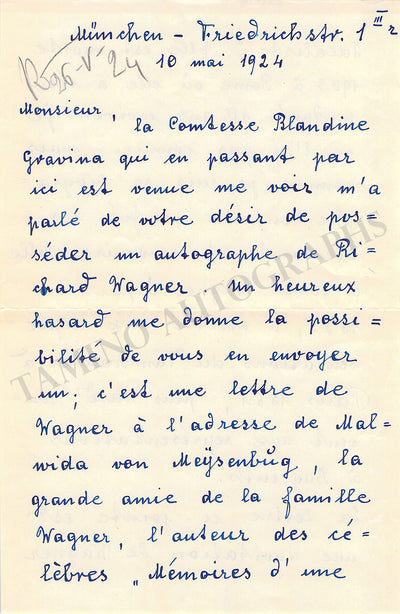 München - Friedrichstr. 1 III r
R 26-V-24
10 mai 1924
Monsieur,
la Comtesse Blandine
Gravina qui en passant par
ici est venue me voir m'a
parlé de votre désir de pos=
séder un autographe de Ri=
chard Wagner. Un heureux
hasard me donne la possi=
bilité de vous en envoyer
un; c'est une lettre de
Wagner à l'adresse de Mal=
wida von Meÿsenbŭg, la
grande amie de la famille
Wagner, l'auteur des cé=
lèbres „Mémoires d'une
TAMINO AUTOGRAPHS